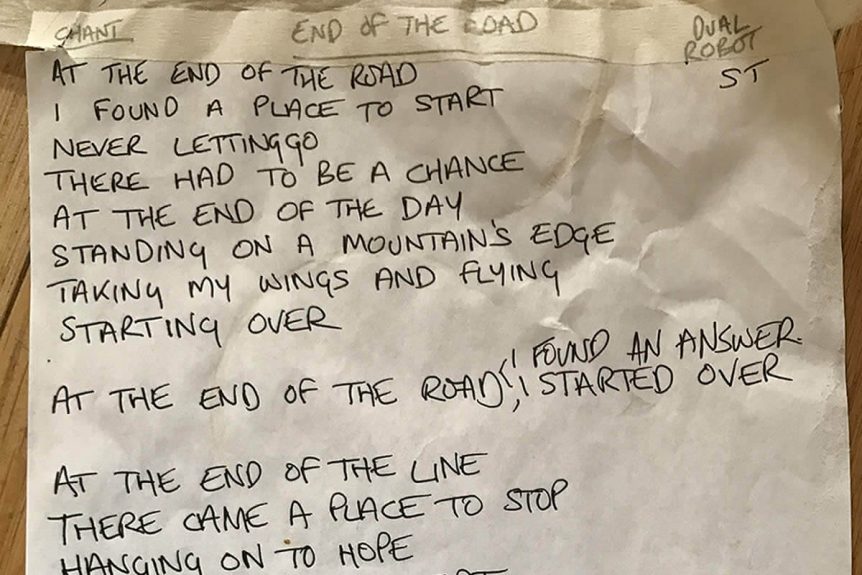 CHANT END OF THE ROAD DUAL
ROBOT
ST
AT THE END OF THE ROAD
I FOUND A PLACE TO START
NEVER LETTING GO
THERE HAD TO BE A CHANCE
AT THE END OF THE DAY
STANDING ON A MOUNTAIN'S EDGE
TAKING MY WINGS AND FLYING
STARTING OVER
I FOUND AN ANSWER.
AT THE END OF THE ROAD, I STARTED OVER
AT THE END OF THE LINE
THERE CAME A PLACE TO STOP
HANGING ON TO HOPE